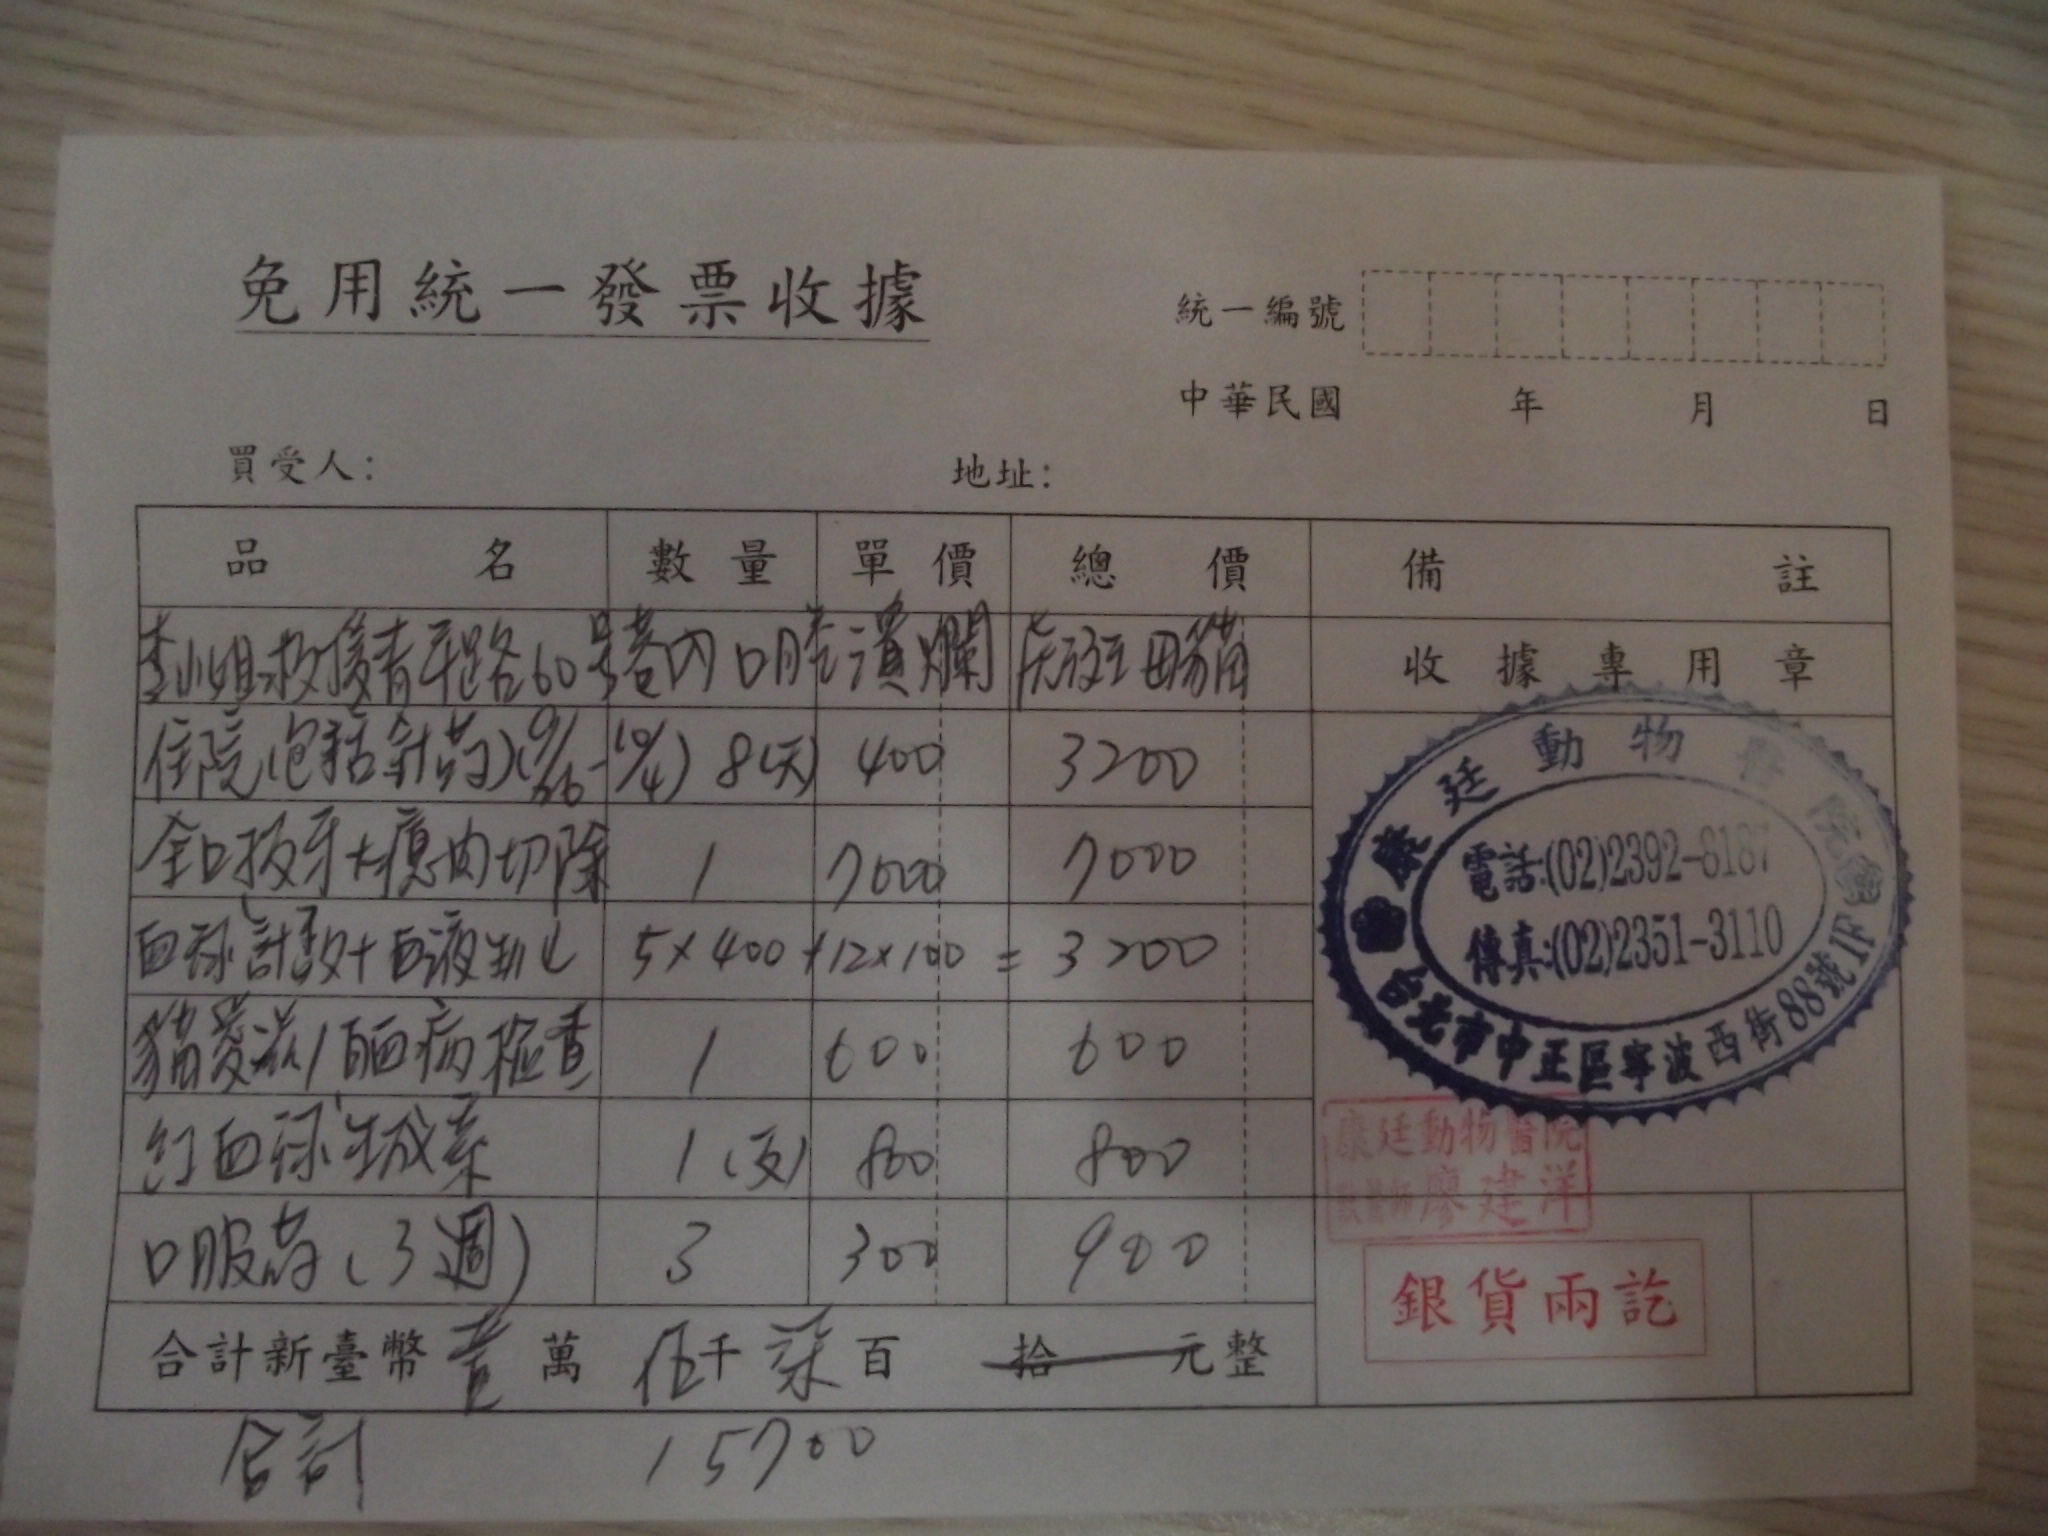 免用統一發票收據
統一編號
中華民國 年 月 日
買受人： 地址：
品名 數量 單價 總價 備註
李小姐救援青平路60号巷內口腔潰爛 灰斑母貓 收據專用章
住院(包括針药)(9/26-10/4) 8(天) 400 3200
全口拔牙+瘜肉切除 1 7000 7000
血球計數+血液生化 5×400+12×100= 3200
貓愛滋/白血病檢查 1 600 600
紅血球生成素 1(支) 800 800
口服药(3週) 3 300 900
合計新臺幣壹萬伍千柒百拾元整
合計 15700
康廷動物醫院
電話:(02)2392-8187
傳真:(02)2351-3110
台北市中正區寧波西街88號1F
康廷動物醫院
獸醫師廖建洋
銀貨兩訖